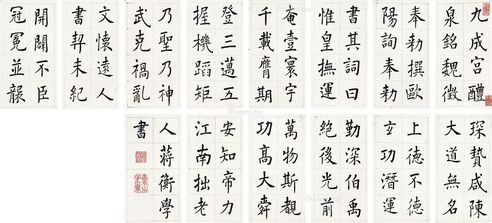 九成宮醴
泉銘魏徵
奉勅撰歐
陽詢奉勅
書其詞曰
惟皇撫運
奄壹寰宇
千載膺期
登三邁五
握機蹈矩
乃聖乃神
武克禍亂
文懷遠人
書契未紀
開闢不臣
冠冕並襲
琛贄咸陳
大道無名
上德不德
玄功潛運
勤深伯禹
絕後光前
萬物斯覩
功高大舜
安知帝力
江南拙老
人蔣衡學
書